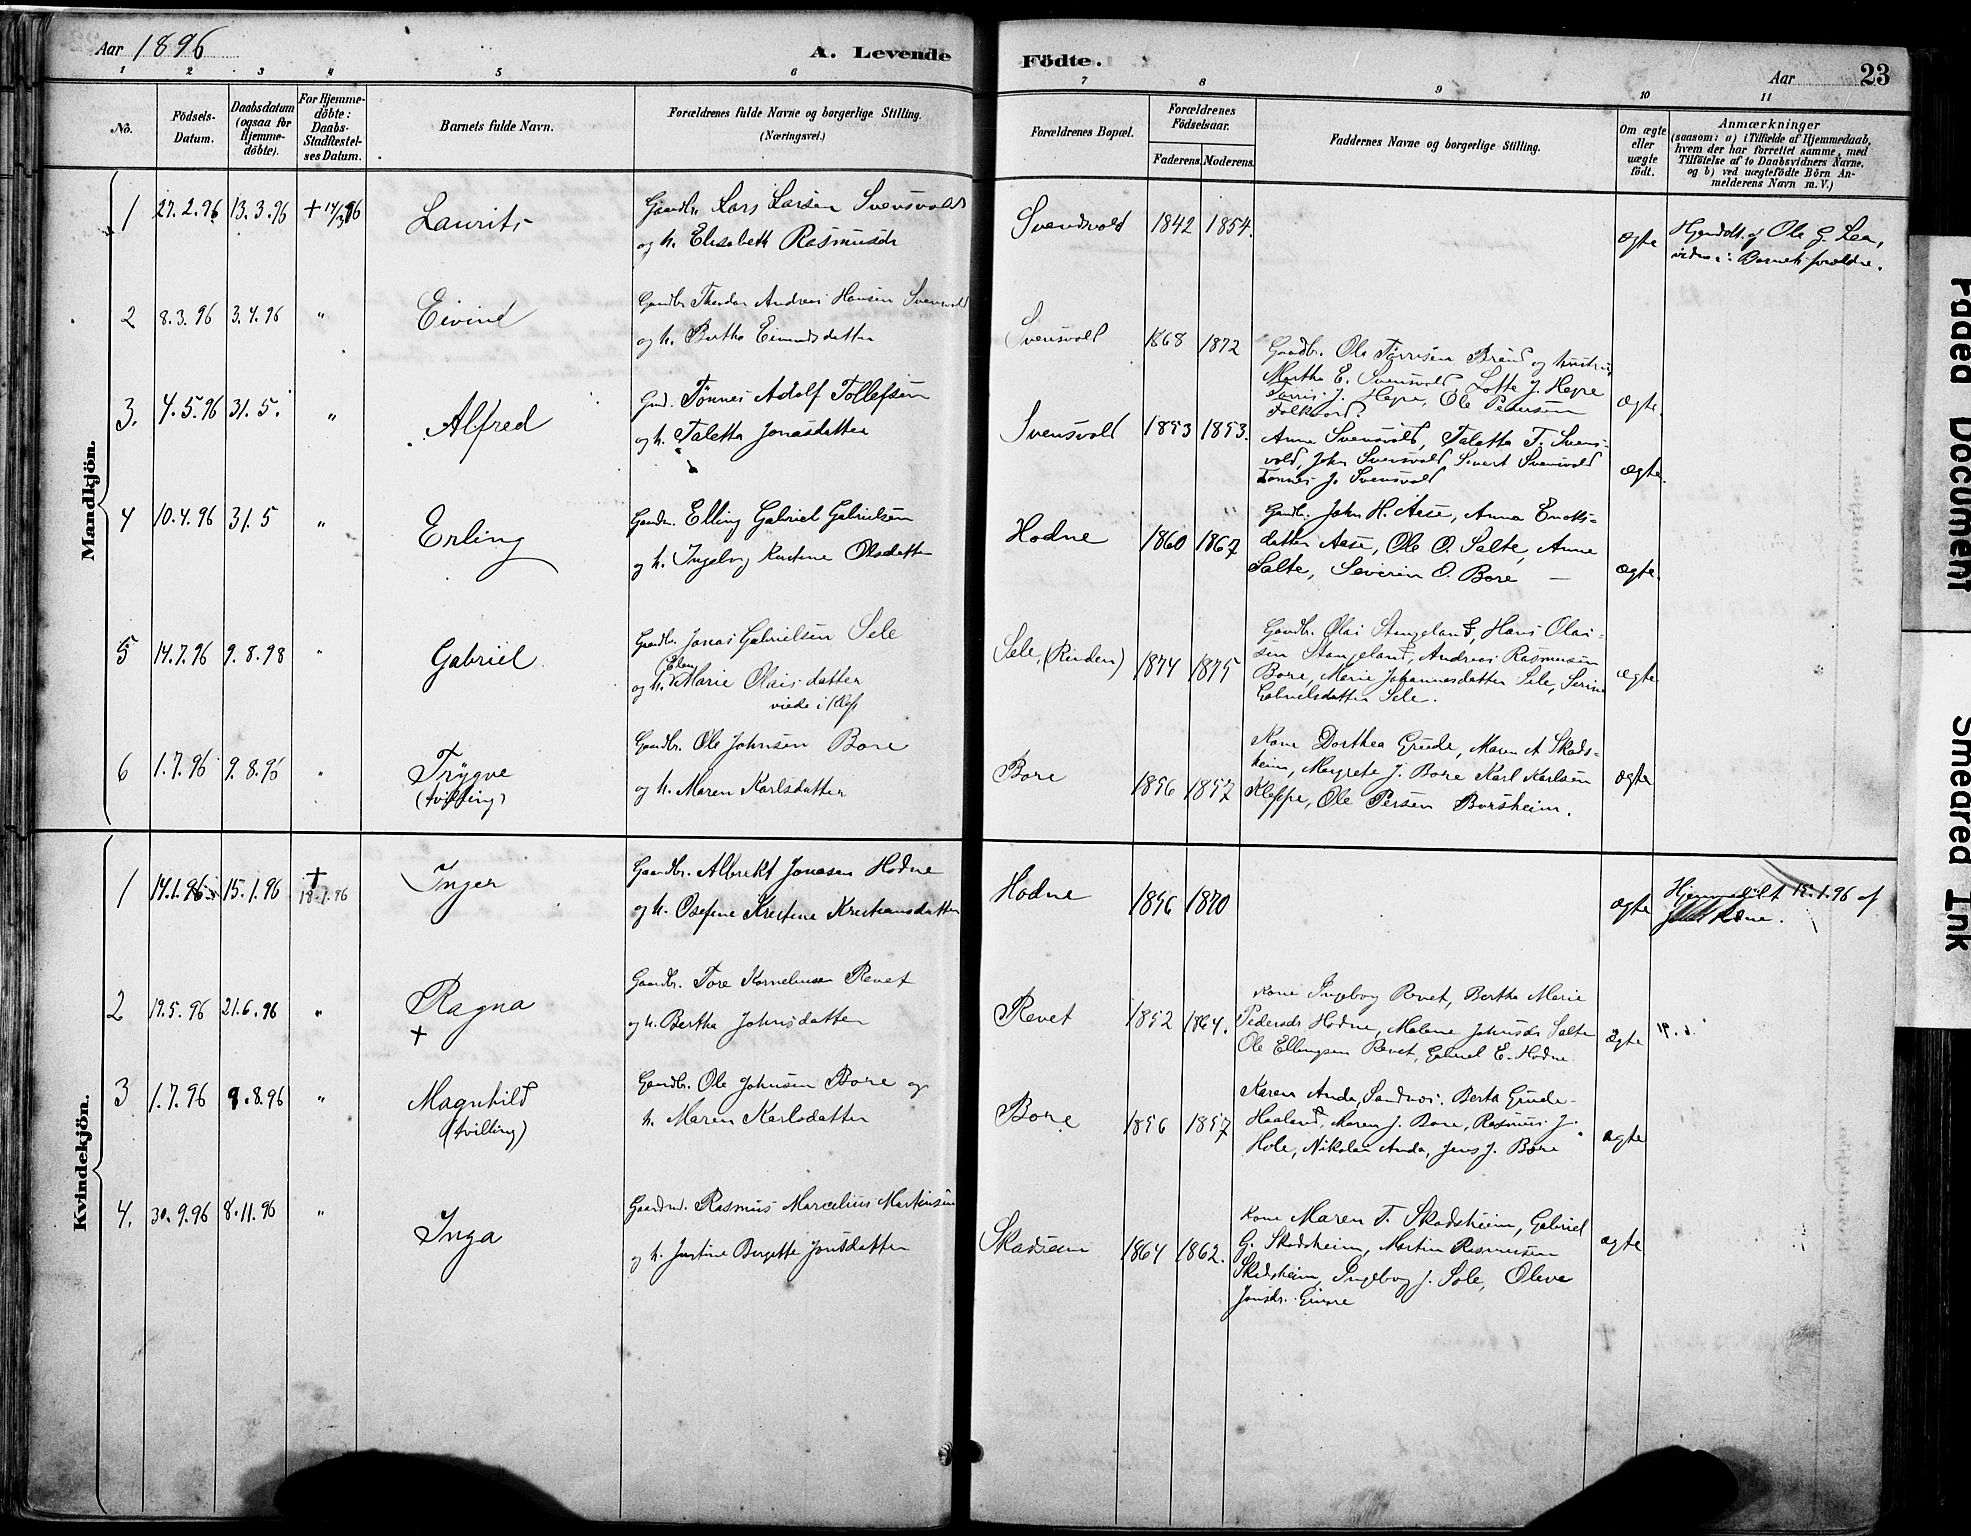 Aar 1896
A. Levende
Födte.
Aar
23
1 2 3 4 5 6 7 8 9 10 11
No.
Födsels-
Datum.
Daabsdatum
(ogsaa for
Hjemme-
döbte).
For Hjemme-
döbte:
Daabs-
Stadfæstel-
ses Datum.
Barnets fulde Navn.
Forældrenes fulde Navne og borgerlige Stilling.
(Næringsvei.)
Forældrenes Bopæl.
Forældrenes
Födselsaar.
Faderens. Moderens.
Faddernes Navne og borgerlige Stilling.
Om ægte
eller
uægte
födt.
Anmærkninger
(saasom: a) i Tilfælde af Hjemmedaab,
hvem der har forrettet samme, med
Tilföielse af to Daabsvidners Navne,
og b) ved uægtefödte Börn An-
melderens Navn m. V.)
Mandkjön.
1 27.2.96 13.3.96 + 14/3 96 Laurits
Gaardbr. Lars Larsen Svensvold
og h. Elisabeth Rasmusdr
Svendsvold 1842 1854.
ægte
Hjemdøbt. af Ole G. Lea,
vidner: Barnets forældre.
2 8.3.96 3.4.96 " Eivind
Gaardbr. Theodor Andreas Hansen Svensvold
og h. Bertha Eivindsdatter
Svensvold 1868 1872
Gaardbr. Ole Tørresen Brend og hustru
Martha E. Svensvold, Lotte J. Hegre
Tørris J. Hegre, Ole Pedersen
Folkvord.
ægte.
3. 4.5.96 31.5. " Alfred
Gmd. Tønnes Adolf Tollefsen
og h. Taletta Jonasdatter
Svensvold 1853 1853.
Anna Svensvold, Taletta T. Svens-
vold, John Svensvold Sivert Svensvold
Tønnes J. Svensvold
ægte.
4 10.4.96 31.5 " Erling
Gaardm. Elling Gabriel Gabrielsen
og h. Ingeborg Kristine Olsdatter
Hodne 1860 1867
Gaardb. John H. Aase, Anna Enoks-
datter Aase, Ole O. Salte, Anne
Salte, Severin O. Bore
ægte.
5 14.7.96 9.8.98 " Gabriel
Gaardbr. Jonas Gabrielsen Sele
og h. Elen Marie Olaisdatter
viede i Klep
Sele, (Rinden) 1874 1875
Gaardbr. Olai Stangeland, Hans Olai-
sen Stangeland, Andreas Rasmusen
Bore, Marie Johannesdatter Sele, Serine
Gabrielsdatter Sele.
ægte
6 1.7.96 9.8.96 " Trygve
(tvilling)
Gaardbr. Ole Johnsen Bore
og h. Maren Karlsdatter
Bore 1856 1857
Kone Dorthea Grude, Maren A Skads-
heim, Margrete J. Bore Karl Karlsen
Kleppe, Ole Persen Borsheim.
ægte
Kvindekjön.
1 14.1.96 15.1.96 + 18.1.96 Inger
Gaardbr. Albrekt Jonasen Hodne
og h. Osefine Kristine Kristiansdatter
Hodne 1856 1870
ægte
Hjemmedøbt 15.1.96 af
2 19.5.96 21.6.96 " Ragna
+
Gaardbr. Tore Korneliussen Revet
og h. Bertha Johnsdatter
Revet 1852 1864.
Kone Ingeborg Revet, Bertha Marie
Pedersdr Hodne, Malene Johnsdr Salte
Ole Ellingsen Revet, Gabriel E. Hodne
ægte
3 1.7.96 9.8.96 " Magnhild
(tvilling)
Gaardbr. Ole Johnsen Bore og
h. Maren Karlsdatter
Bore 1856 1857
Karen Anda, Sandnes. Berta Grude-
Haaland, Maren J. Bore, Rasmus J.
Hole, Nikolai Anda, Jens J. Bore
ægte
4. 30.9.96 8.11.96 " Inga
Gaardmd. Rasmus Marcelius Martinsen
og h. Justine Bergette Jonsdatter
Skadsem 1864 1862.
Kone Maren T. Skadsheim, Gabriel
G. Skadsheim, Martin Rasmusen
Skadsheim, Ingeborg J. Sole, Oleve
Jonsdr.
ægte
Faded Document
Smeared Ink